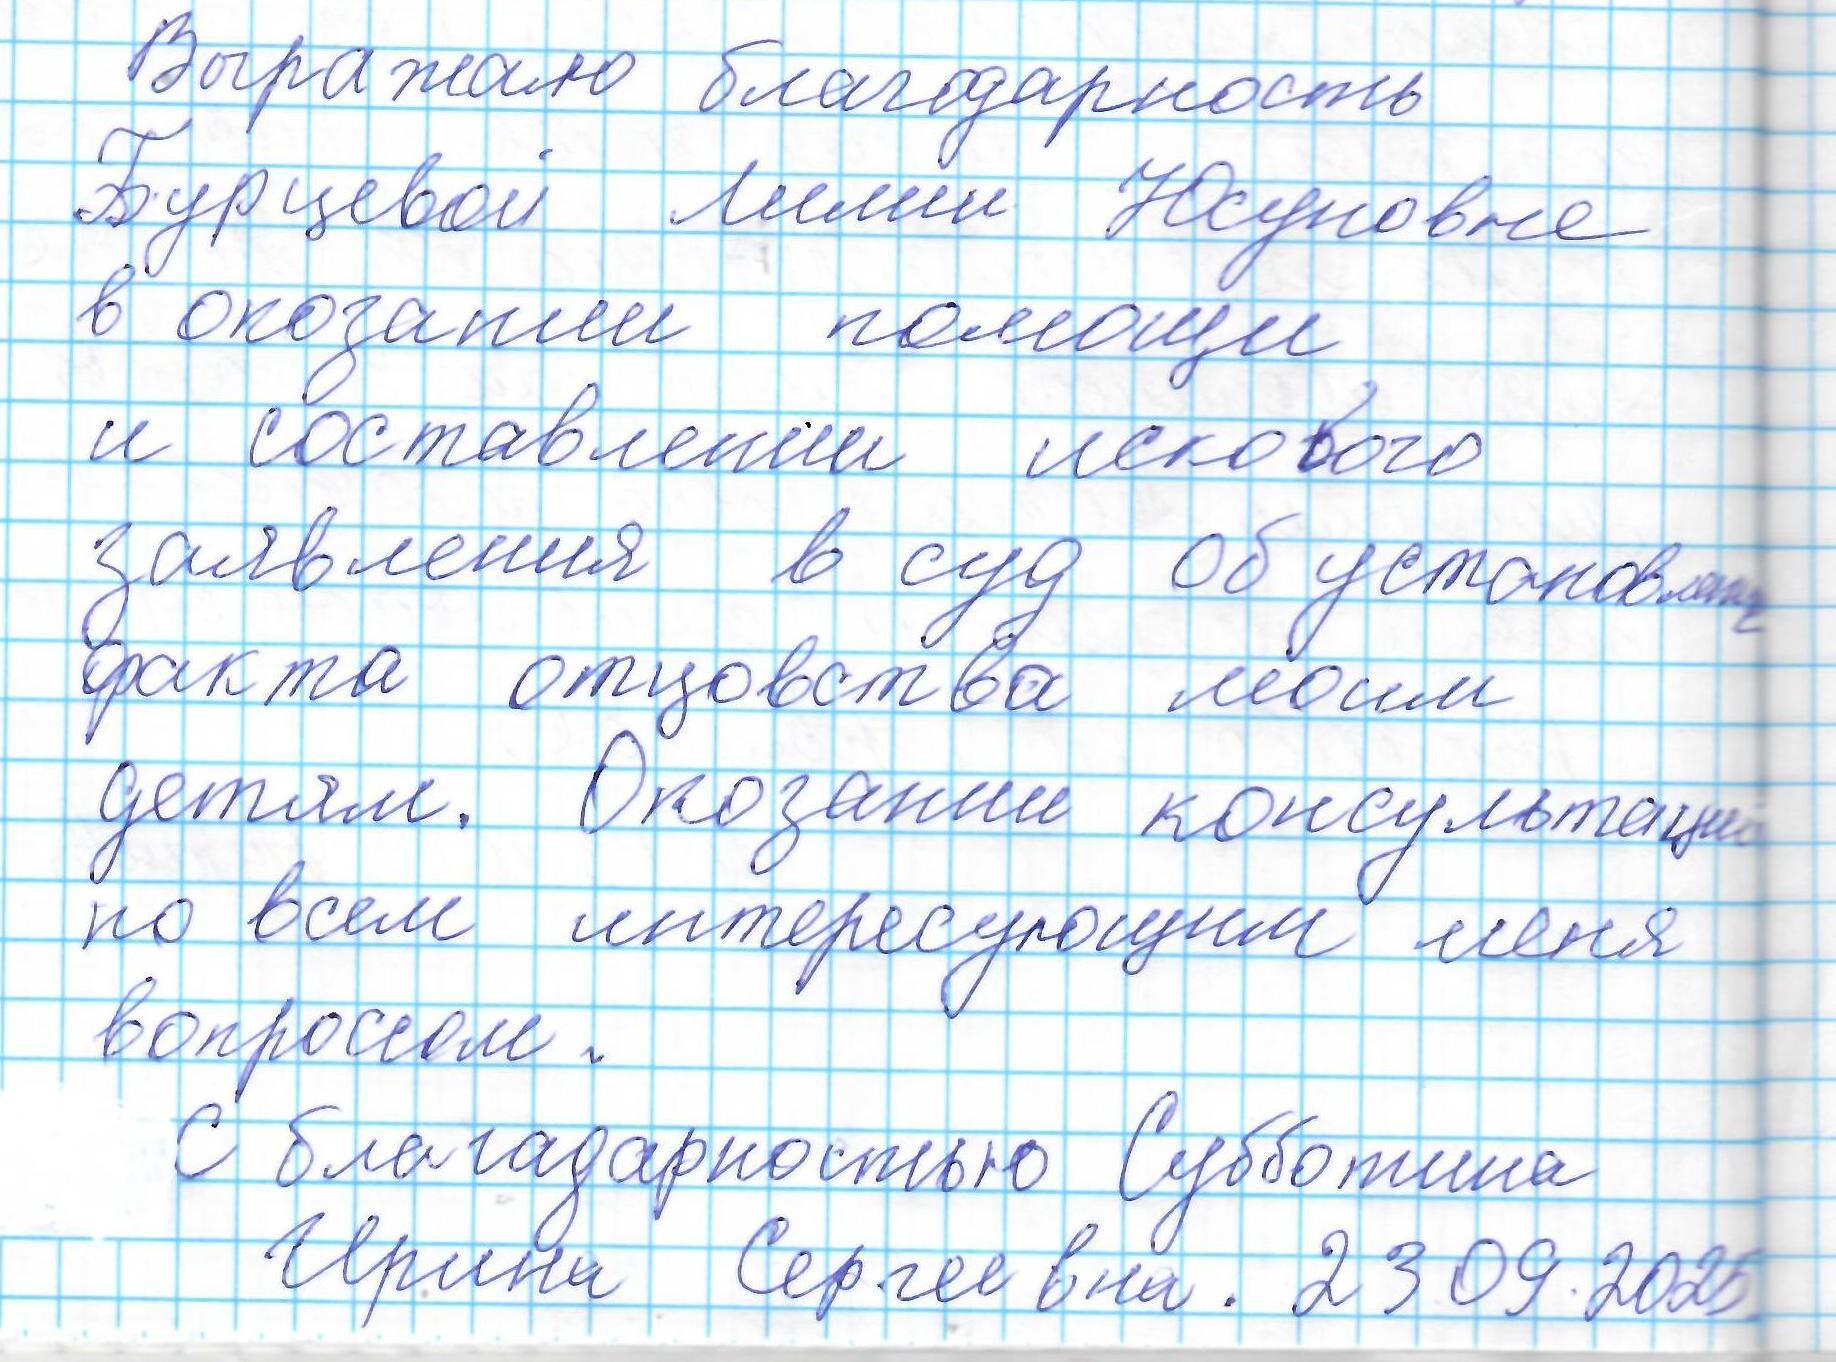 Выражаю благодарность
Бурцевой Лилии Юсуповне
в окозании помощи
и составлении искового
заявления в суд об установлении
факта отцовства моим
детям. Окозании консультаций
по всем интересующим меня
вопросам.
С благадарностью Субботина
Ирина Сергеевна. 23 09.2025